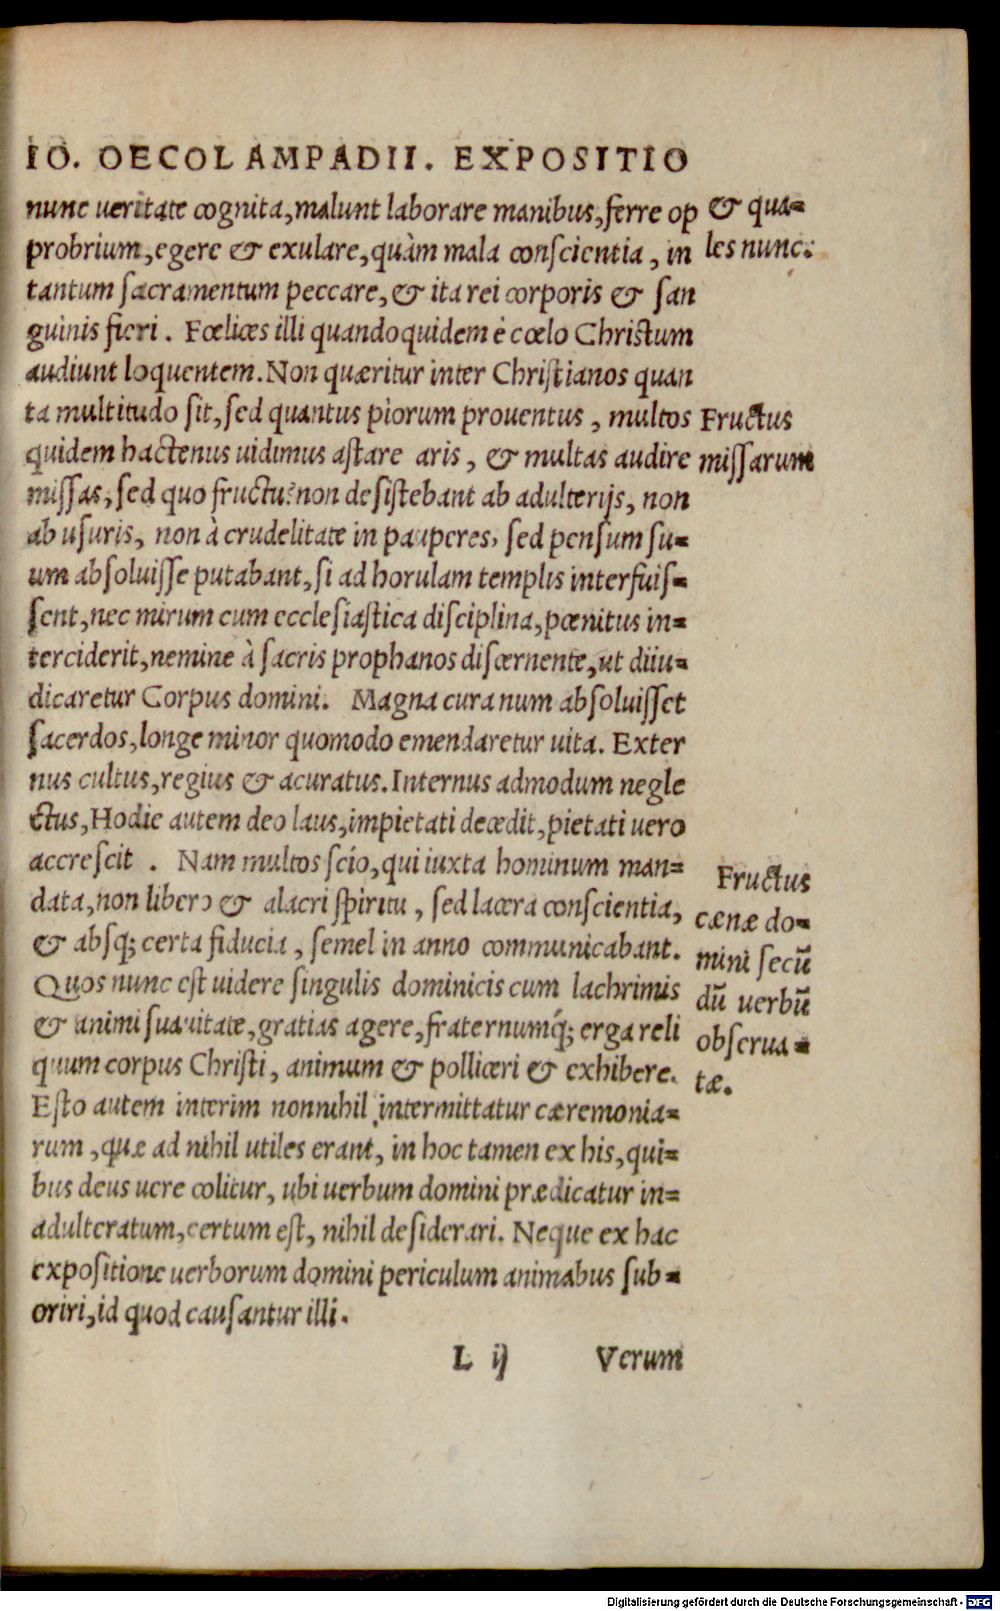 IO. OECOLAMPADII. EXPOSITIO
nunc ueritate cognita, malunt laborare manibus, ferre op
probrium, egere & exulare, quàm mala conscientia, in
tantum sacramentum peccare, & ita rei corporis & san
guinis fieri. Fœlices illi quandoquidem è cœlo Christum
audiunt loquentem. Non quæritur inter Christianos quan
ta multitudo sit, sed quantus piorum prouentus, multos
quidem hactenus uidimus astare aris, & multas audire
missas, sed quo fructu? non desistebant ab adulterijs, non
ab usuris, non à crudelitate in pauperes, sed pensum su=
um absoluisse putabant, si ad horulam templis interfuis=
sent, nec mirum cum ecclesiastica disciplina, pœnitus in=
terciderit, nemine à sacris prophanos discernente, ut diiu=
dicaretur Corpus domini. Magna cura num absoluisset
sacerdos, longe minor quomodo emendaretur uita. Exter
nus cultus, regius & acuratus. Internus admodum negle
ctus, Hodie autem deo laus, impietati decedit, pietati uero
accrescit. Nam multos scio, qui iuxta hominum man=
data, non libero & alacri spiritu, sed lacera conscientia,
& absq; certa fiducia, semel in anno communicabant.
Quos nunc est uidere singulis dominicis cum lachrimis
& animi suauitate, gratias agere, fraternumq́; erga reli
quum corpus Christi, animum & polliceri & exhibere.
Esto autem interim nonnihil intermittatur cæremonia=
rum, quæ ad nihil utiles erant, in hoc tamen ex his, qui=
bus deus uere colitur, ubi uerbum domini prædicatur in=
adulteratum, certum est, nihil desiderari. Neque ex hac
expositione uerborum domini periculum animabus sub=
oriri, id quod causantur illi.
L ij Verum
& qua=
les nunc.
Fructus
missarum
Fructus
cænæ do=
mini secū
dū uerbū
obserua=
tæ.
Digitalisierung gefördert durch die Deutsche Forschungsgemeinschaft - DFG